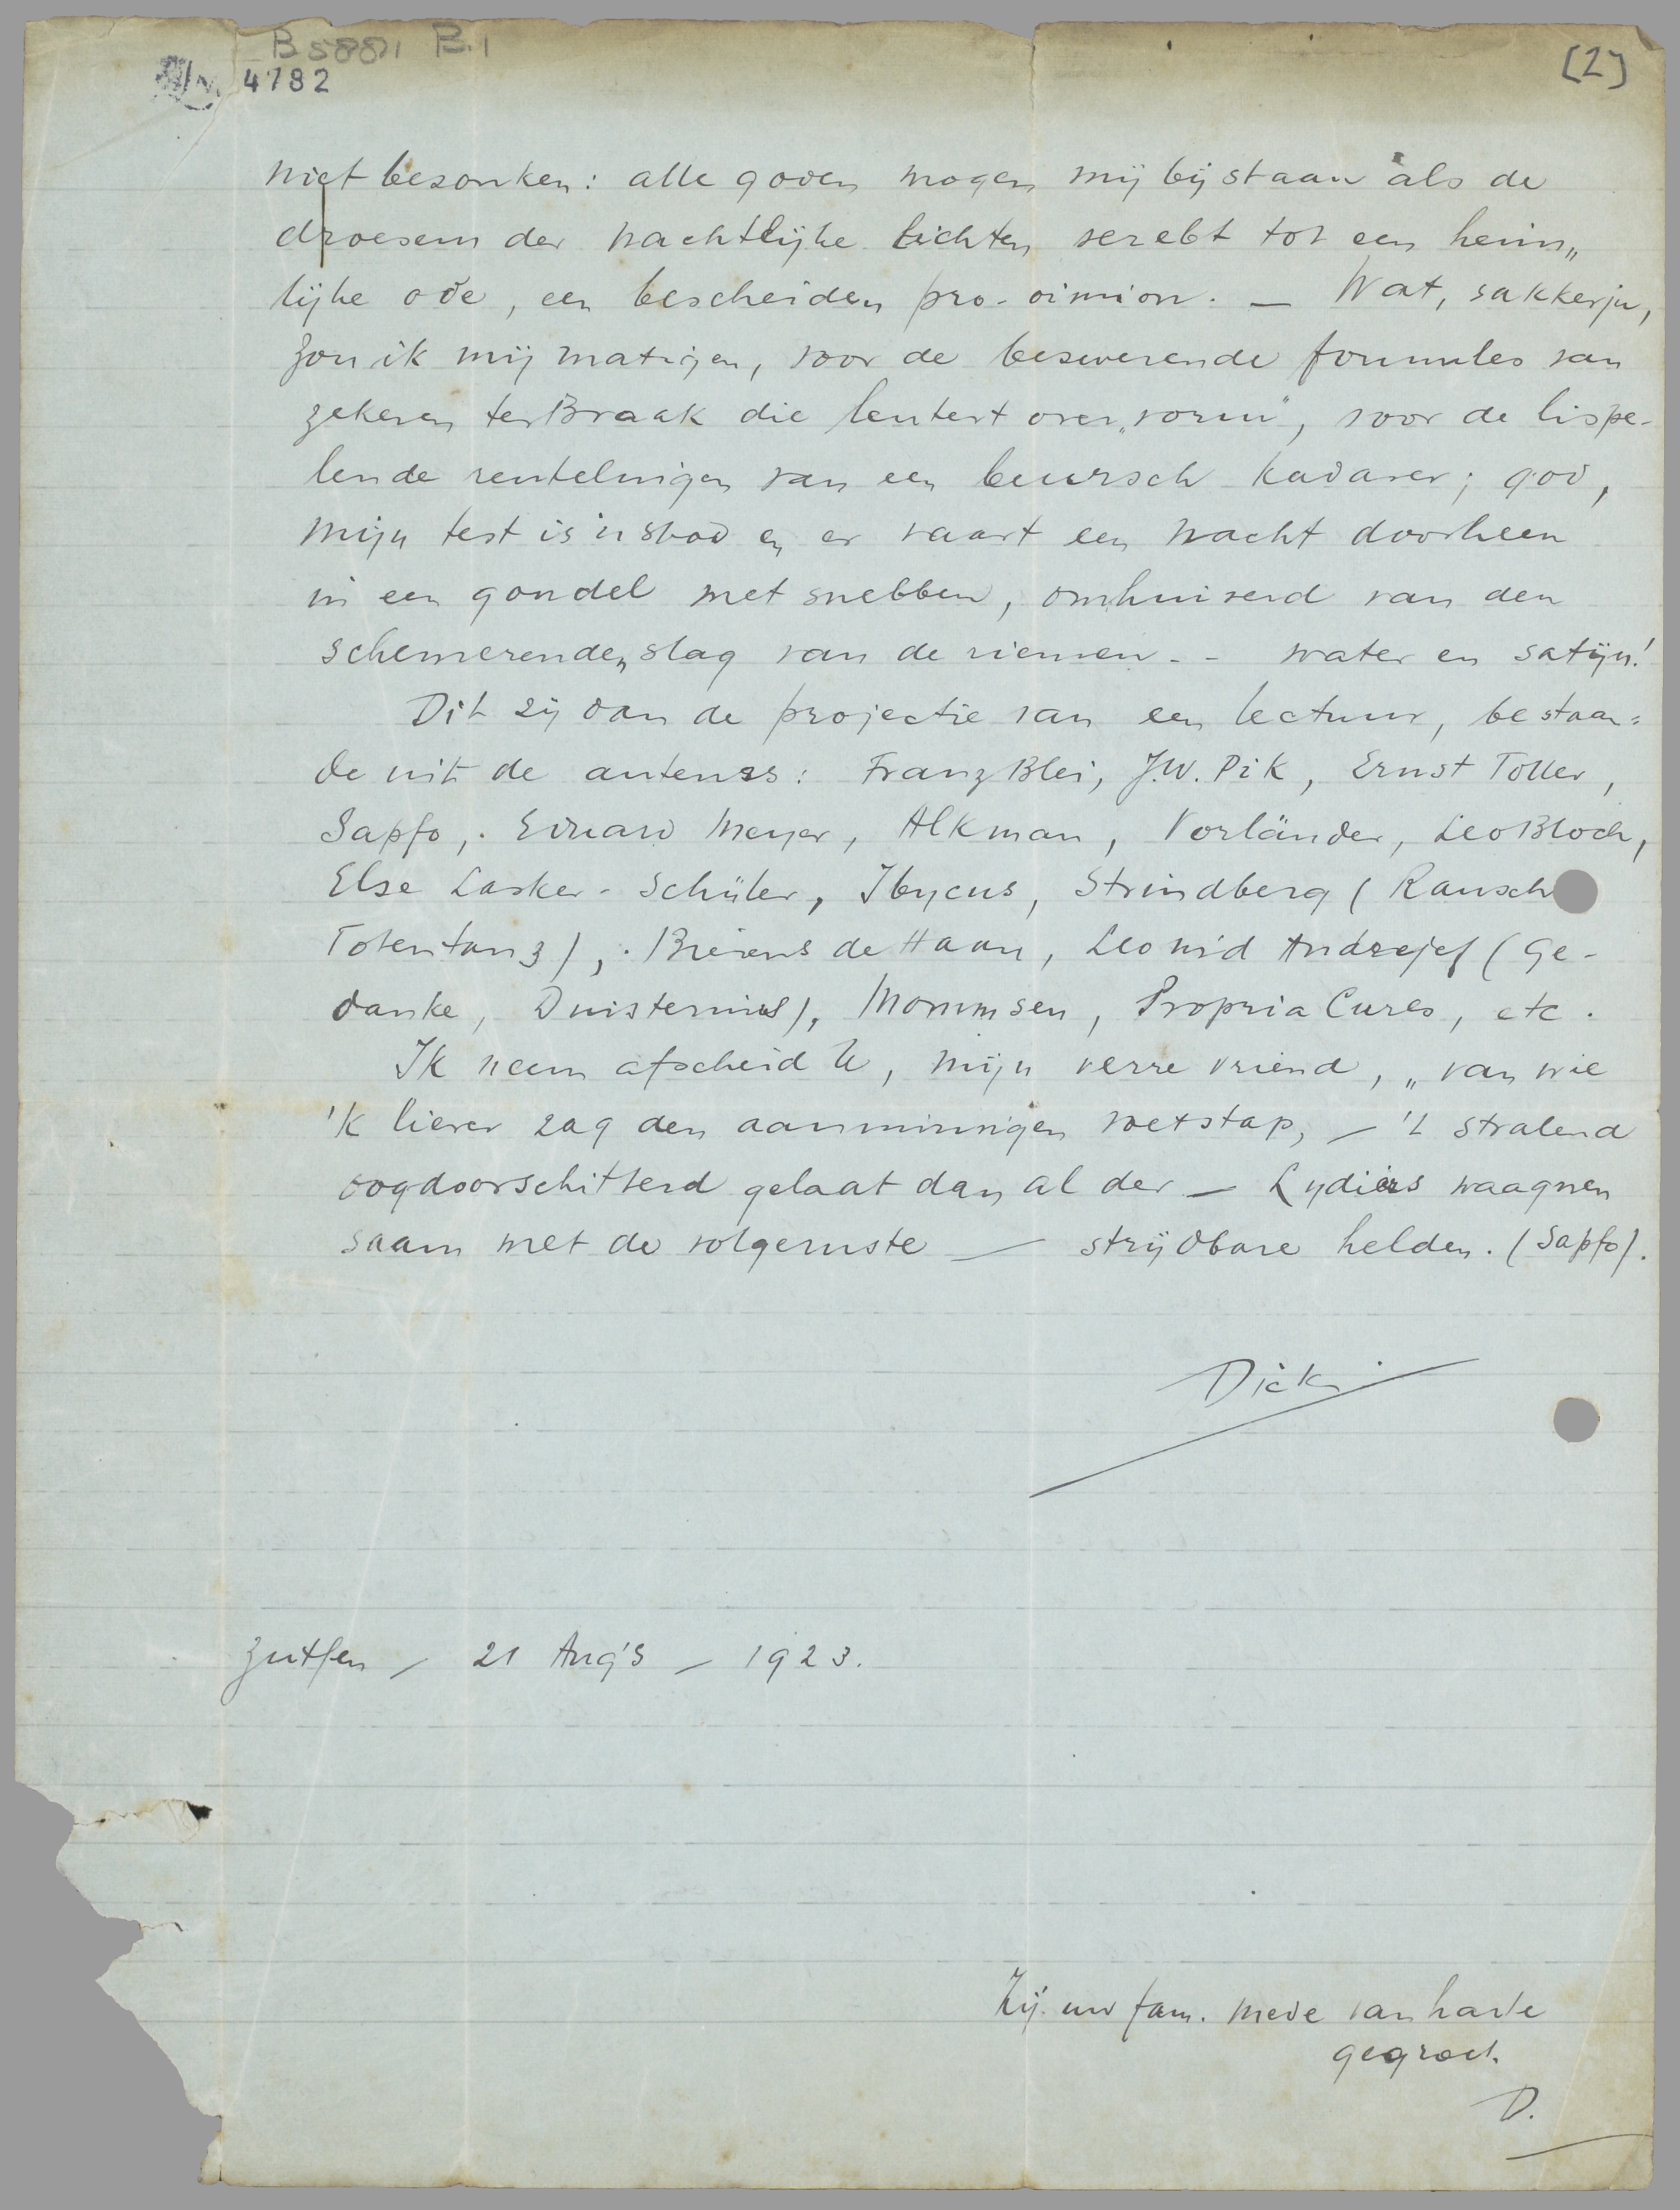 B5881 B.1
4782
(2)
niet bezonken: alle goden mogen mij bijstaan als de
droesem der nachtlijke lichten verebt tot een heim„
lijke ode, een bescheiden pro-oimion. — Wat, sakkerju,
zou ik mij matigen, voor de beswerende formules van
zekeren ter Braak die leutert over „vorm", voor de lispe-
lende reutelingen van een beursch kadaver; god,
mijn test is 'n sloot en er vaart een nacht doorheen
in een gondel met snebben, omhuiverd van den
schemerenden slag van de riemen - - water en satijn!
Dit zij dan de projectie van een lectuur, bestaan=
de uit de auteurs: Franz Blei, J.W. Pik, Ernst Toller,
Sapfo, Eduard Meyer, Alkman, Vorländer, Leo Bloch,
Else Lasker-Schüler, Ibycus, Strindberg (Rausch
Totentanz), Bierens de Haan, Leonid Andrejef (Ge-
danke, Duisternis), Mommsen, Propria Cures, etc.
Ik neem afscheid U, mijn verre vriend, „van wie
'k liever zag den aanminnigen voetstap, — 't stralend
oogdoorschitterd gelaat dan al der — Lydiërs waagnen
saam met de volgeruste — strijdbare helden. (Sapfo).
Dick
Zutfen — 21 Aug's — 1923.
Zij uw fam. mede van harte
gegroet.
D.